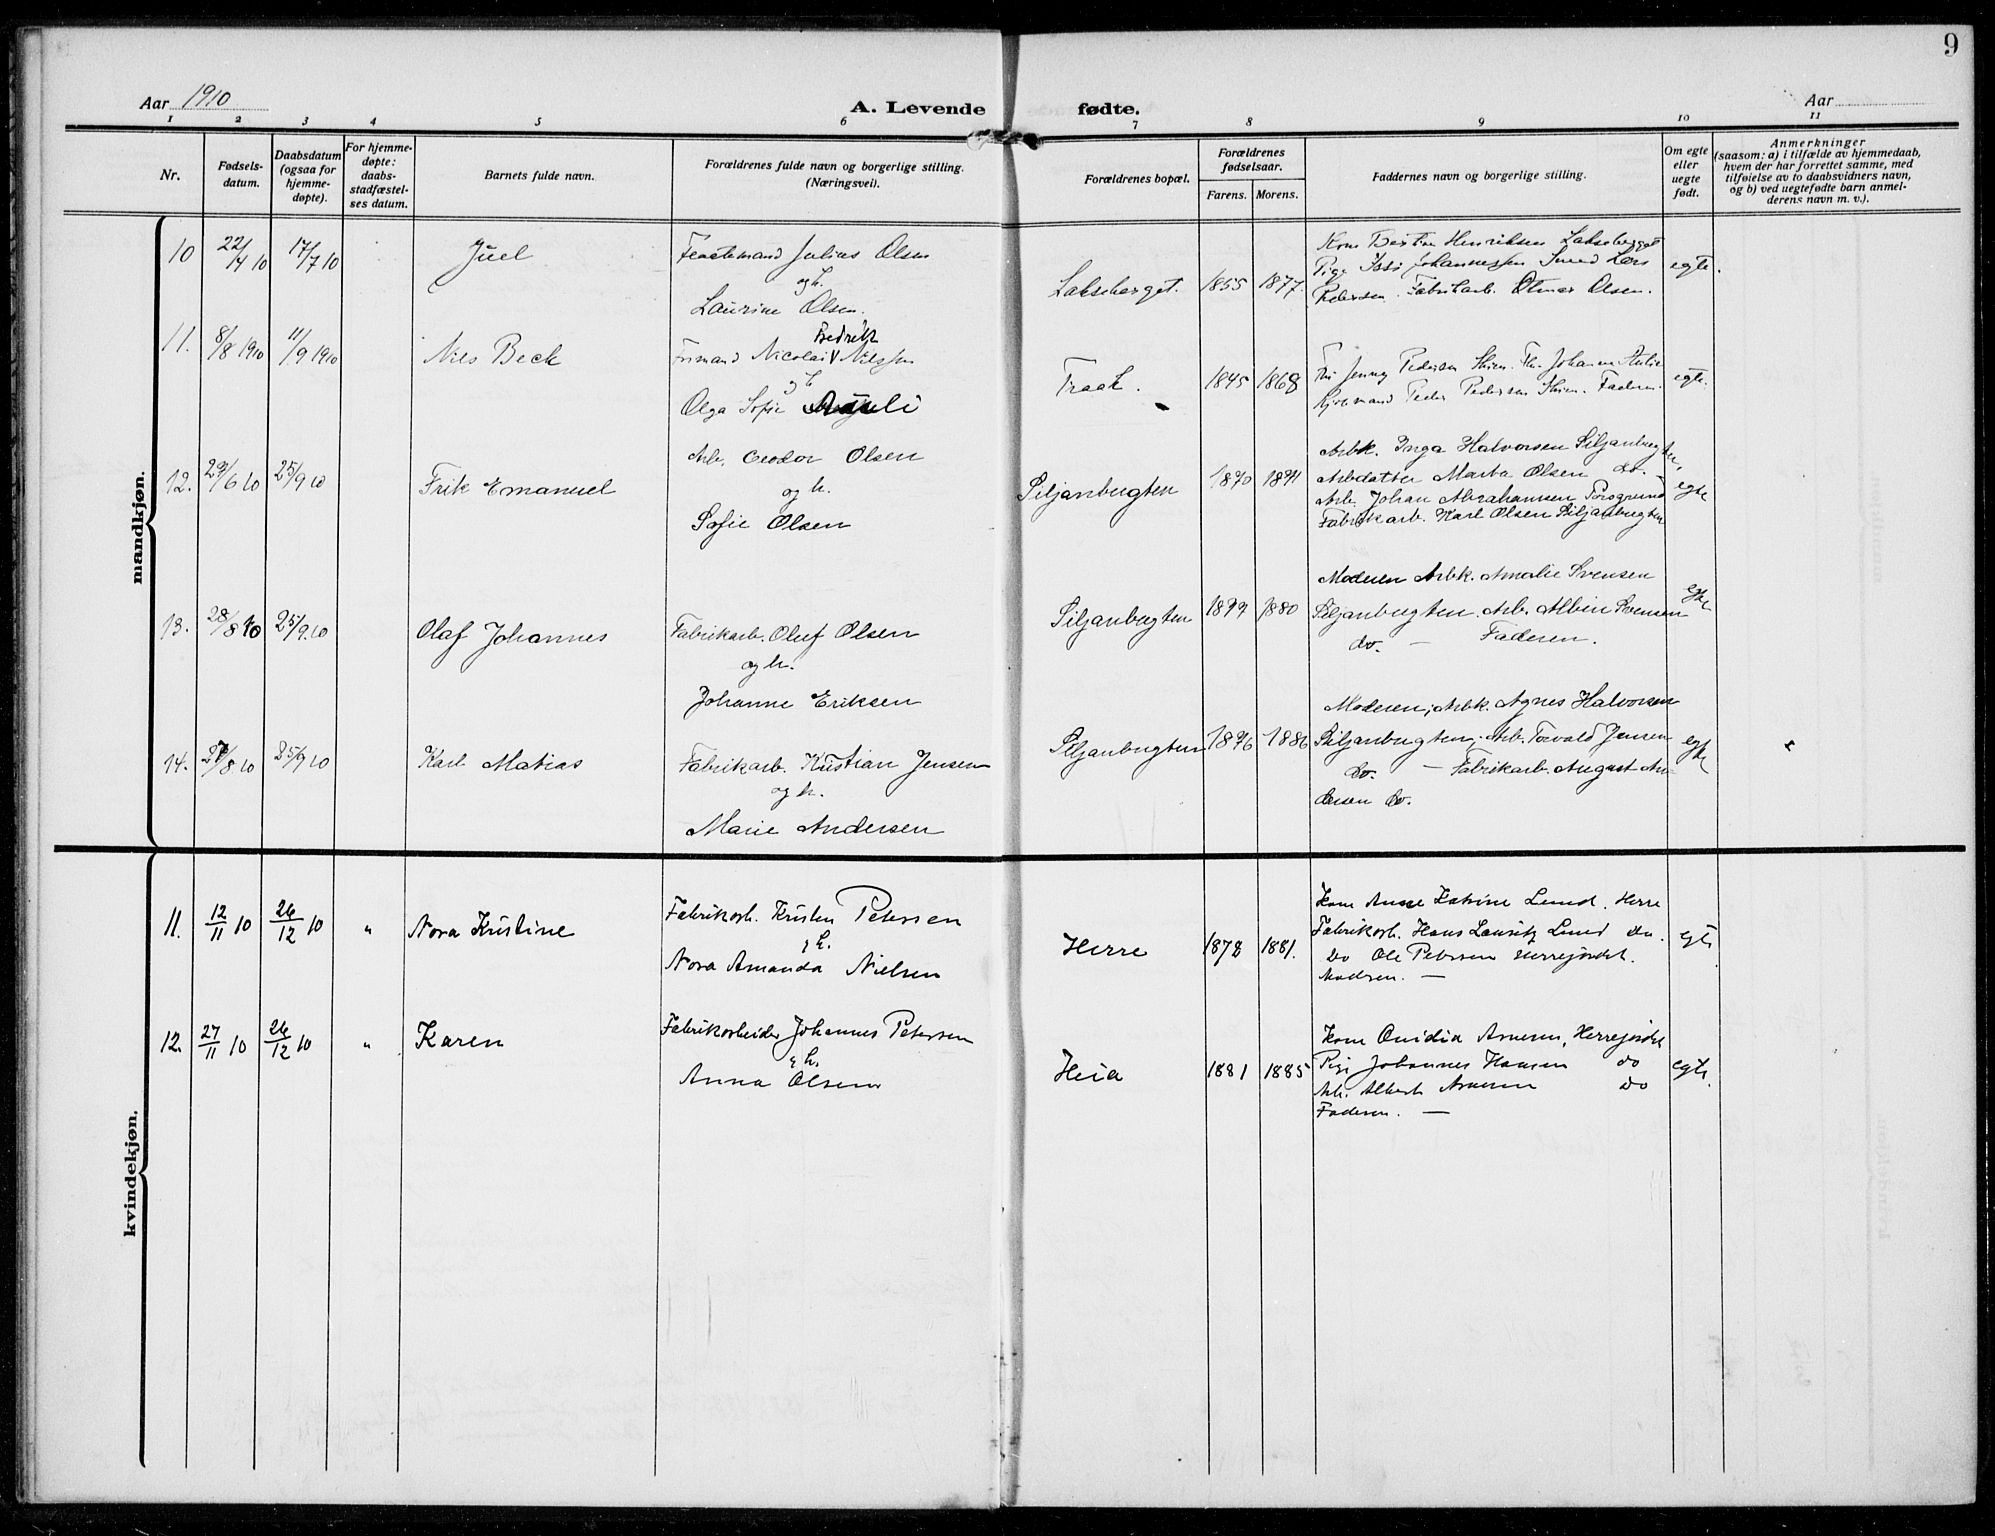 9
Aar 1910
A. Levende fødte.
Aar
1 2 3 4 5 6 7 8 9 10 11
Nr.
Fødsels-
datum.
Daabsdatum
(ogsaa for
hjemme-
døpte).
For hjemme-
døpte:
daabs-
stadfæstel-
ses datum.
Barnets fulde navn.
Forældrenes fulde navn og borgerlige stilling.
(Næringsvei).
Forældrenes bopæl.
Forældrenes
fødselsaar.
Farens. Morens.
Faddernes navn og borgerlige stilling.
Om egte
eller
uegte
født.
Anmerkninger
(saasom: a) i tilfælde av hjemmedaab,
hvem der har forrettet samme, med
tilføielse av to daabsvidners navn,
og b) ved uegtefødte barn anmel-
derens navn m. v.).
mandkjøn.
10 22/4 10 17/7 10 Juel
Julius Olsen
og h.
Laurine Olsen.
Lakseberget. 1855 1877.
Kone Henriksen Lakseberget
Pige Johannessen Smed Lars
Pedersen. Fabrikarb. Olsen.
egte.
11. 8/8 1910 11/9 1910 Nils Beck
Fredrik
Nicolai V Nilssen
g h
Olga Sofie
Traak. 1845 1868
Fru Jenny Pedersen Skien. Johanne
Kjøbmand Peder Pedersen Skien. Faderen.
egte.
12. 29/6 10 25/9 10 Frik Emanuel
Arb. Olsen
og h.
Sofie Olsen
Siljanbugten 1870 1871
Arbk. Inga Halvorsen Siljanbugten,
Arbdatter Marta Olsen do. -
Arb. Johan Abrahamsen Porsgrund
Fabrikarb. Karl Olsen Siljanbugten
egte
13. 28/8 10 25/9 10 Olaf Johannes
Fabrikarb. Oluf Olsen
og h.
Johanne Eriksen
Siljanbugten 1879 1880
Moderen Arbk. Amalie Svensen
Siljanbugten. Arb. Albin Svensen
do. — Faderen.
egte
14. 27/8 10 25/9 10 Karl Matias
Fabrikarb. Kristian Jensen
og h.
Marie Andersen
Siljanbugten 1876 1886
Moderen, Arbk. Agnes Halvorsen
Siljanbugten, Arb. Torvald Jensen
do. — Fabrikarb. August An-
dersen do.
egte
kvindekjøn.
11. 12/11 10 26/12 10 " Nora Kristine
Fabrikarb. Kristen Petersen
g h.
Nora Amanda Nielsen
Herre 1878 1881.
Kone Anne Katrine Lund, Herre
Fabrikarb. Hans Lauritz Lund do.
Do Ole Petersen Herrejordet.
Moderen. —
egte
12. 27/11 10 26/12 10 " Karen
Fabrikarbeider Johannes Petersen
g h.
Anna Olsen
Heia 1881 1885
Kone Herrejordet
Pige Hansen do
Arb. Albert do
Faderen. —
egte.